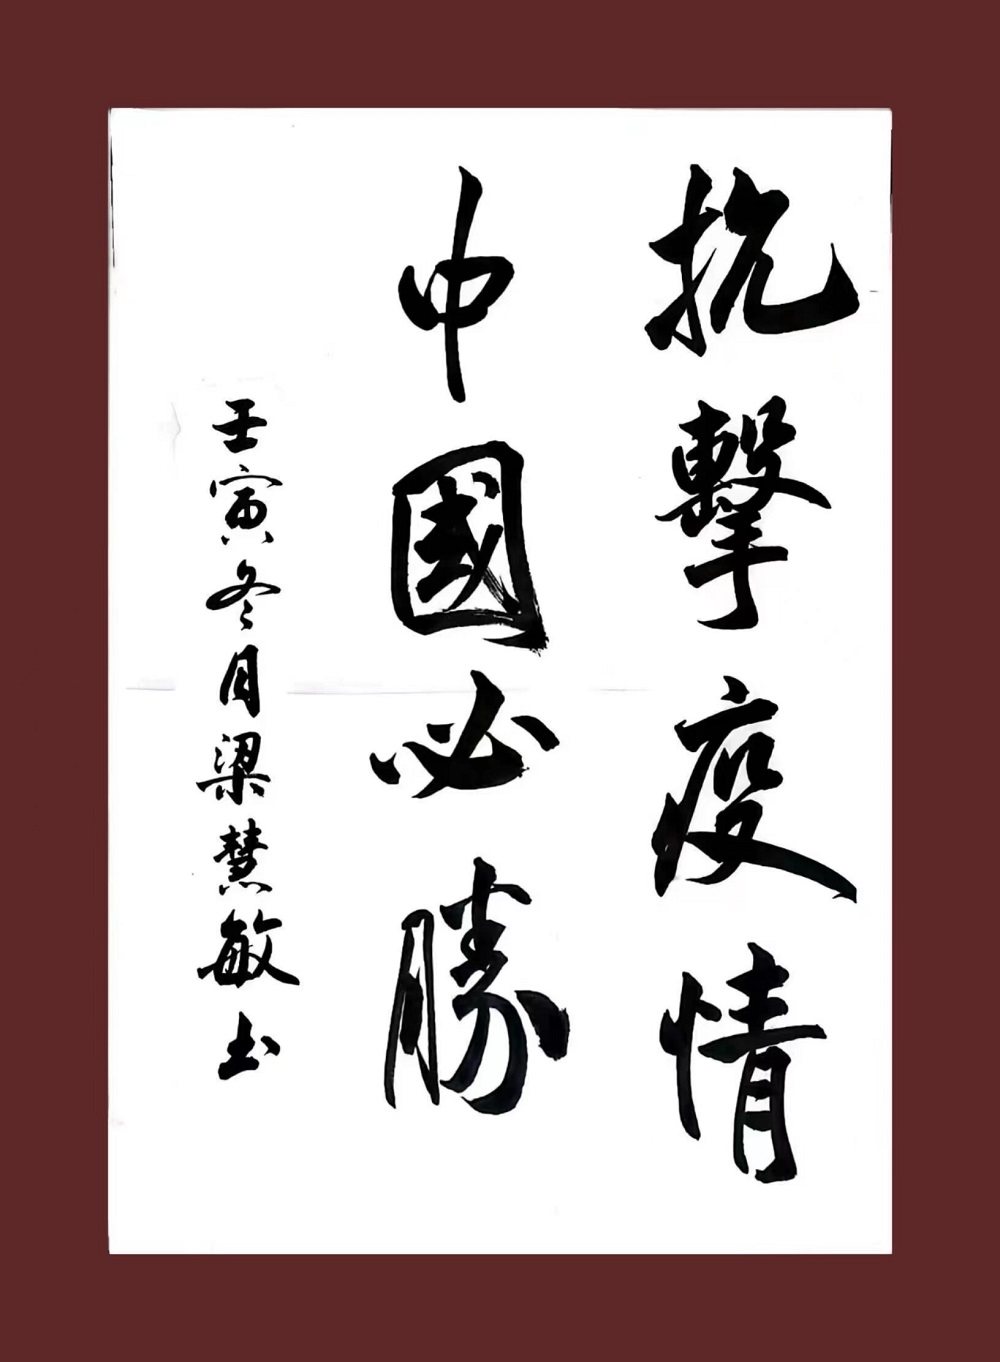 抗擊疫情
中國必勝
壬寅冬月梁慧敏书